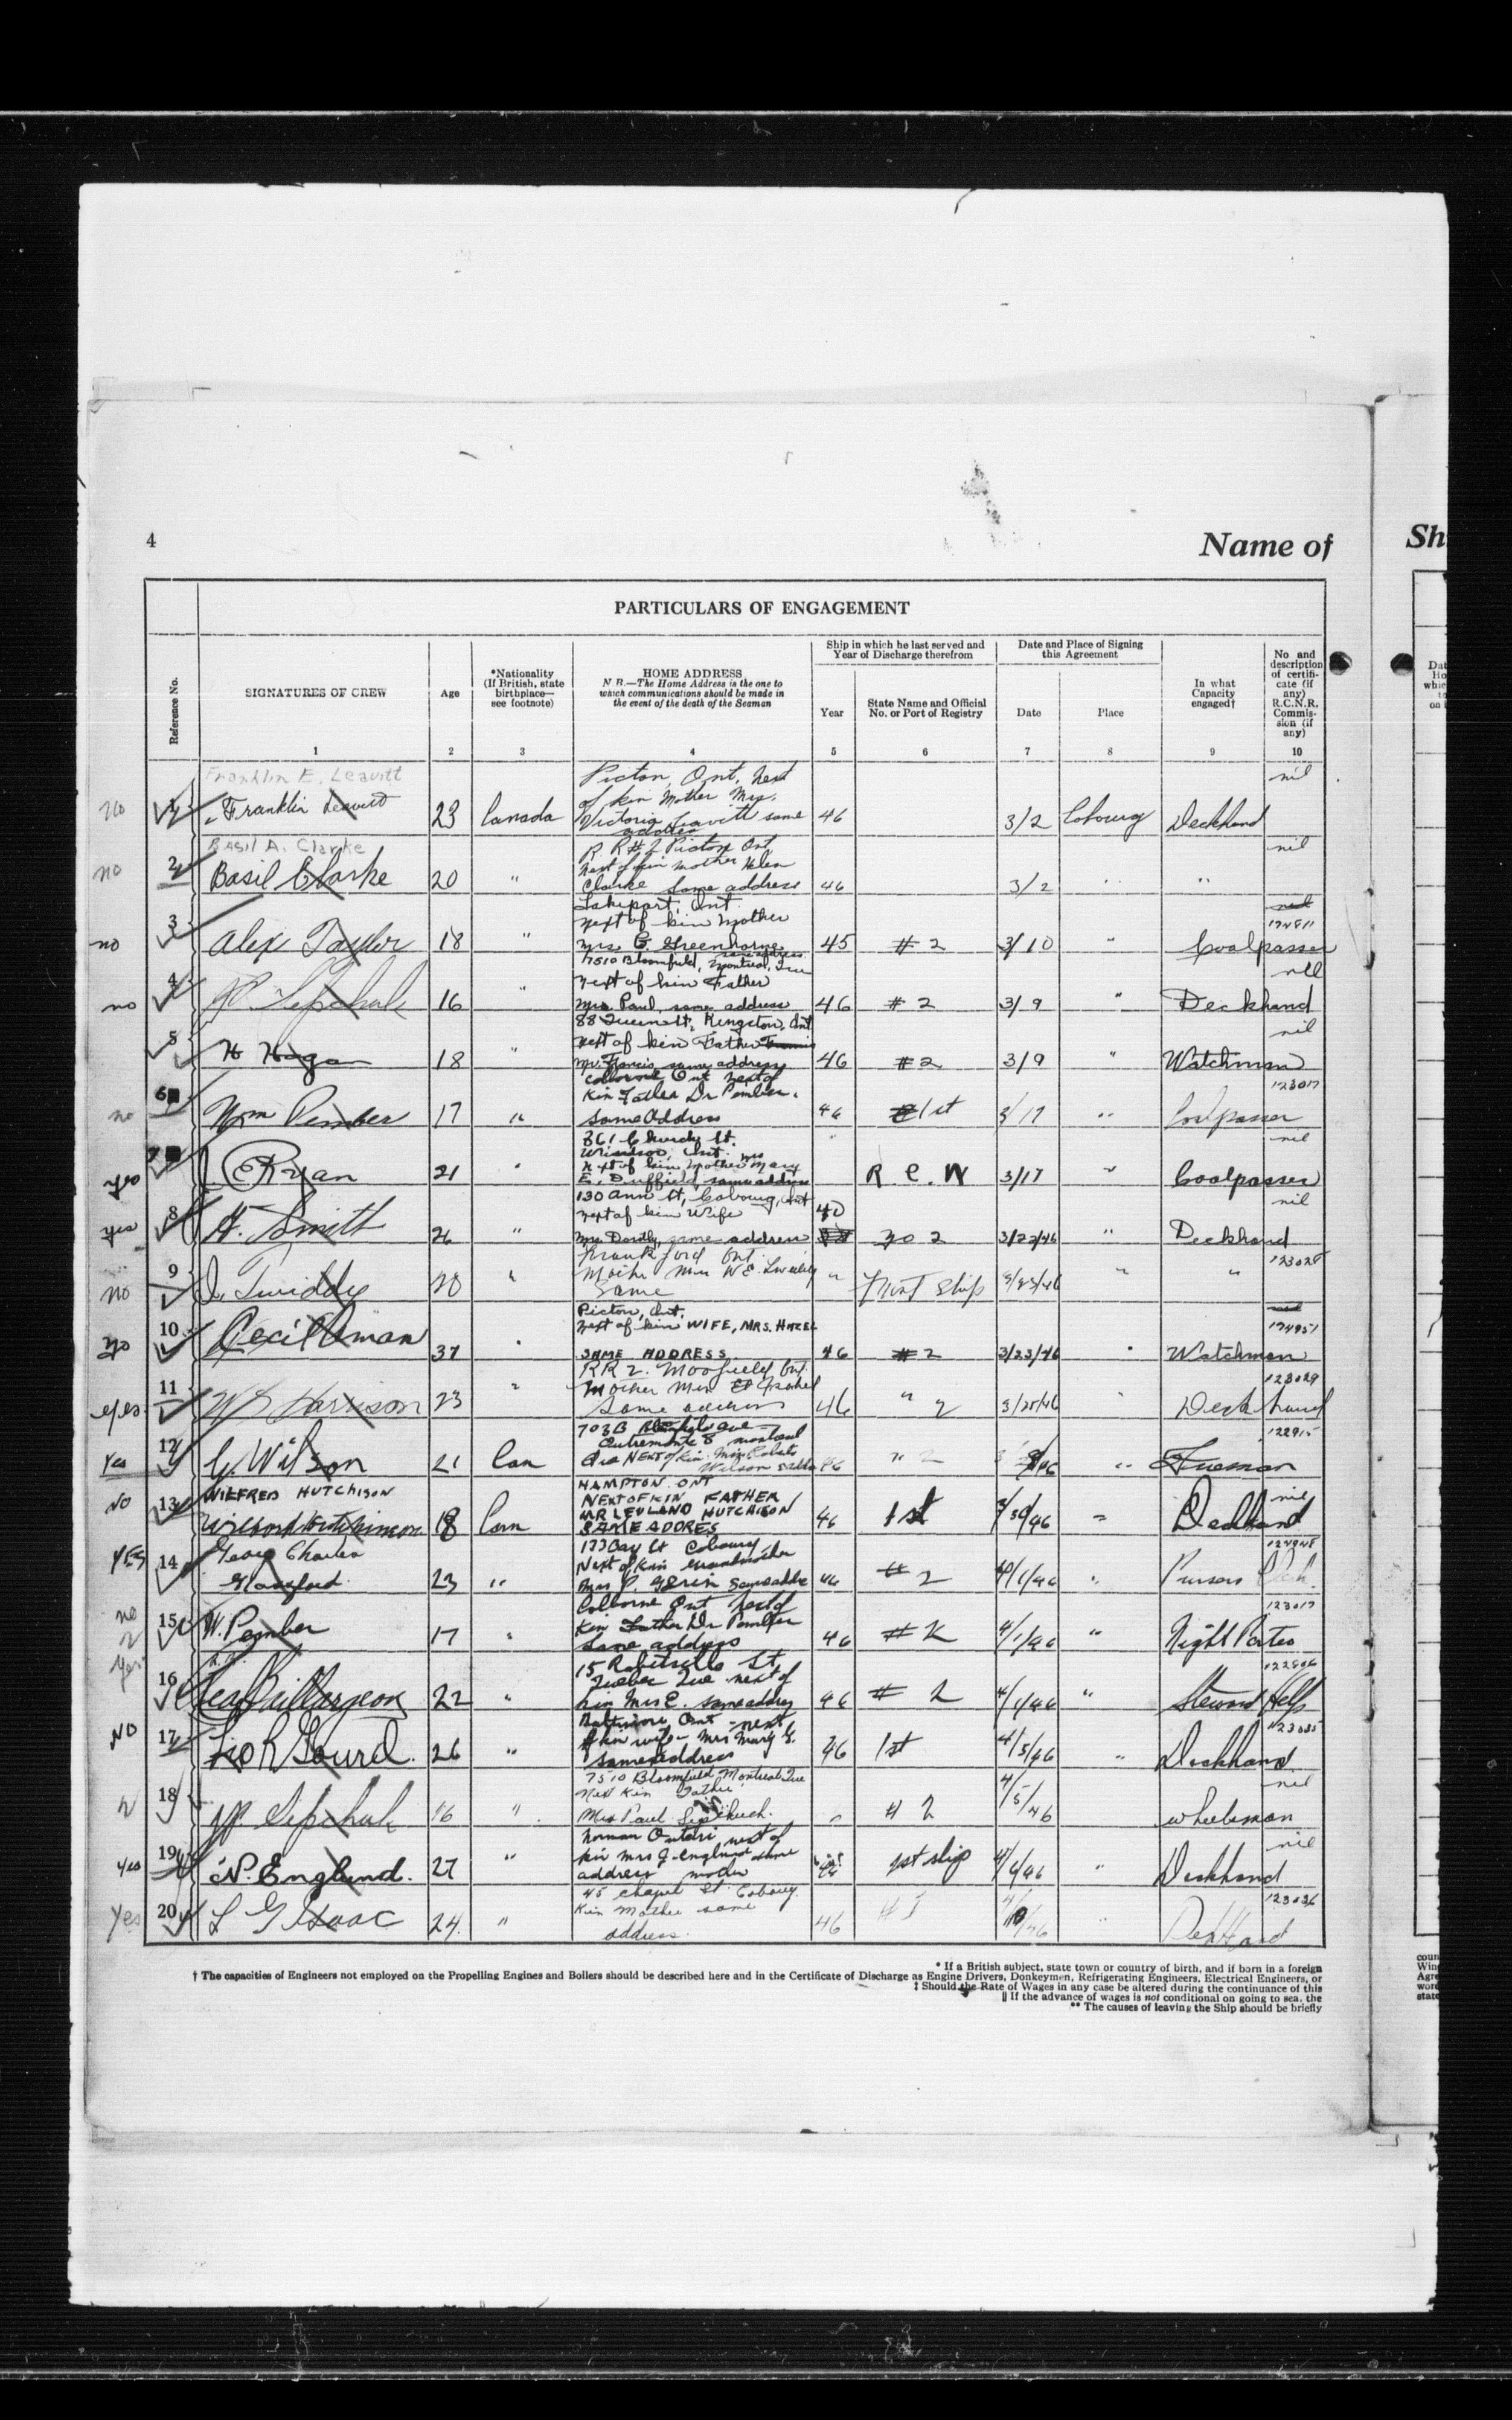 4
Name of
Sh
PARTICULARS OF ENGAGEMENT
Reference No.
SIGNATURES OF CREW
Age
*Nationality
(If British, state
birthplace—
see footnote)
HOME ADDRESS
N.B.—The Home Address is the one to
which communications should be made in
the event of the death of the Seaman
Ship in which he last served and
Year of Discharge therefrom
Year
State Name and Official
No. or Port of Registry
Date and Place of Signing
this Agreement
Date
Place
In what
Capacity
engaged†
No. and
description
of certifi-
cate (if
any)
R.C.N.R.
Commis-
sion (if
any)
1 2 3 4 5 6 7 8 9 10
Franklin E. Leavitt
no 1 Franklin Leavitt 23 Canada
Picton, Ont. Next
of kin Mother Mrs.
Victoria Leavitt same
address
46 3/2 Cobourg Deckhand nil
Basil A. Clarke
no 2 Basil Clarke 20 "
R. R #2 Picton Ont
Next of kin mother Helen
Clarke same address
46 3/2 " " nil
no 3 Alex Taylor 18 "
Lakeport, Ont
next of kin Mother
Mrs. C. Greenhorne
same address
45 #2 3/10 " Coalpasser nil
no 4 16 "
7510 Bloomfield, Montreal, Que
next of kin Father
Mrs. Paul, same address
46 #2 3/9 " Deckhand nil
5 H Hogan 18 "
88 Queen St, Kingston, Ont
next of kin Father
Mr. Francis same address
46 #2 3/9 " Watchman nil
no 6 Wm Pember 17 "
Colborne Ont next of
kin Father Dr Pember.
same Address
46 1st 3/17 " Coalpasser 123017
yes 7 Ryan 21 "
361 Church St.
Windsor, Ont.
next of kin mother Mrs Mary
E. Duffield, same address
" R C N 3/17 " Coalpasser nil
yes 8 H. Smith 26 "
130 Ann St, Cobourg, Ont
next of kin Wife
Mrs Dorothy, same address
40 no 2 3/22/46 " Deckhand nil
no 9 J. Twiddy 20 "
Frankford Ont
Mother Mrs W E Twiddy
same
" First Ship 3/23/46 " " 123028
10 Cecil Aman 37 "
Picton, Ont.
next of kin WIFE, MRS. HAZEL
SAME ADDRESS.
46 #2 3/23/46 " Watchman
yes 11 Harrison 23 "
RR 2. Moofield Ont.
Mother Mrs
same address
46 " 2 3/25/46 " Deckhand 123029
Yes 12 G. Wilson 21 Can
Outremont 8 Montreal
Que Next of kin.
Wilson
46 " 2 " Fireman 122915
WILFRED HUTCHISON
NO 13 18 Can
HAMPTON. ONT
NEXT OF KIN FATHER
MR LEYLAND HUTCHISON
SAME ADDRES
46 1st 3/30/46 " Deckhand nil
YES 14 George Charles
23 "
173 Bay St Cobourg
Next of kin Grandmother
Mrs P. Gerin same addre
46 #2 4/1/46 " Pursers
no 15 W. Pember 17 "
Colborne Ont Next of
Kin Father Dr Pember
same address
46 4/1/46 " Night Porter 123017
yes 16 22 "
Quebec Que next of
kin Mrs E. same addres
46 # 2 4/1/46 " Steward Help
NO 17 Gourd. 26 "
Baltimore Ont next
of kin wife - Mrs Mary G.
same address
46 1st 4/5/46 " Deckhand
18 16 "
7510 Bloomfield Montreal Que
Next Kin Father
Mrs Paul
" # 2 4/5/46 Wheelsman nil
yes 19 N. England. 27 "
Norman Ontari next of
kin Mrs J. England same
address mother
1st ship 4/6/46 " Deckhand nil
yes 20 L G Isaac 24. "
45 Chapel St. Cobourg.
Kin Mother same
address.
46 4/10/46 " 123036
* If a British subject, state town or country of birth, and if born in a foreign
† The capacities of Engineers not employed on the Propelling Engines and Boilers should be described here and in the Certificate of Discharge as Engine Drivers, Donkeymen, Refrigerating Engineers, Electrical Engineers, or
‡ Should the Rate of Wages in any case be altered during the continuance of this
|| If the advance of wages is not conditional on going to sea, the
** The causes of leaving the Ship should be briefly